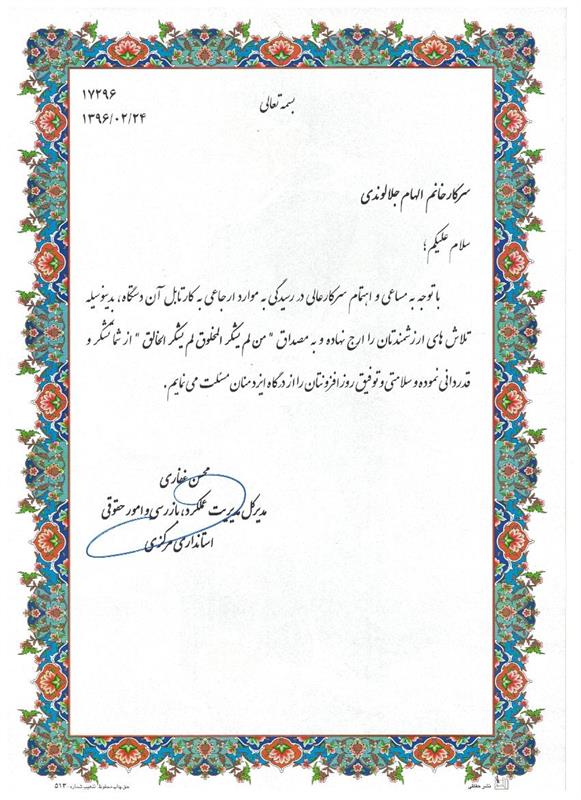 ۱۷۲۹۶
۱۳۹۶/۰۲/۲۴
بسمه تعالی
سرکار خانم الهام جلالوندی
سلام علیکم؛
با توجه به مساعی و اهتمام سرکارعالی در رسیدگی به موارد ارجاعی به کارتابل آن دستگاه، بدینوسیله
تلاش های ارزشمندتان را ارج نهاده و به مصداق "من لم یشکر المخلوق لم یشکر الخالق" از شما تشکر و
قدردانی نموده و سلامتی و توفیق روزافزونتان را از درگاه ایزدمنان مسئلت می نمایم.
محسن غفاری
مدیرکل مدیریت عملکرد، بازرسی و امور حقوقی
استانداری مرکزی
حق چاپ محفوظ تذهیب شماره: ۵۱۳
نشر حقانی